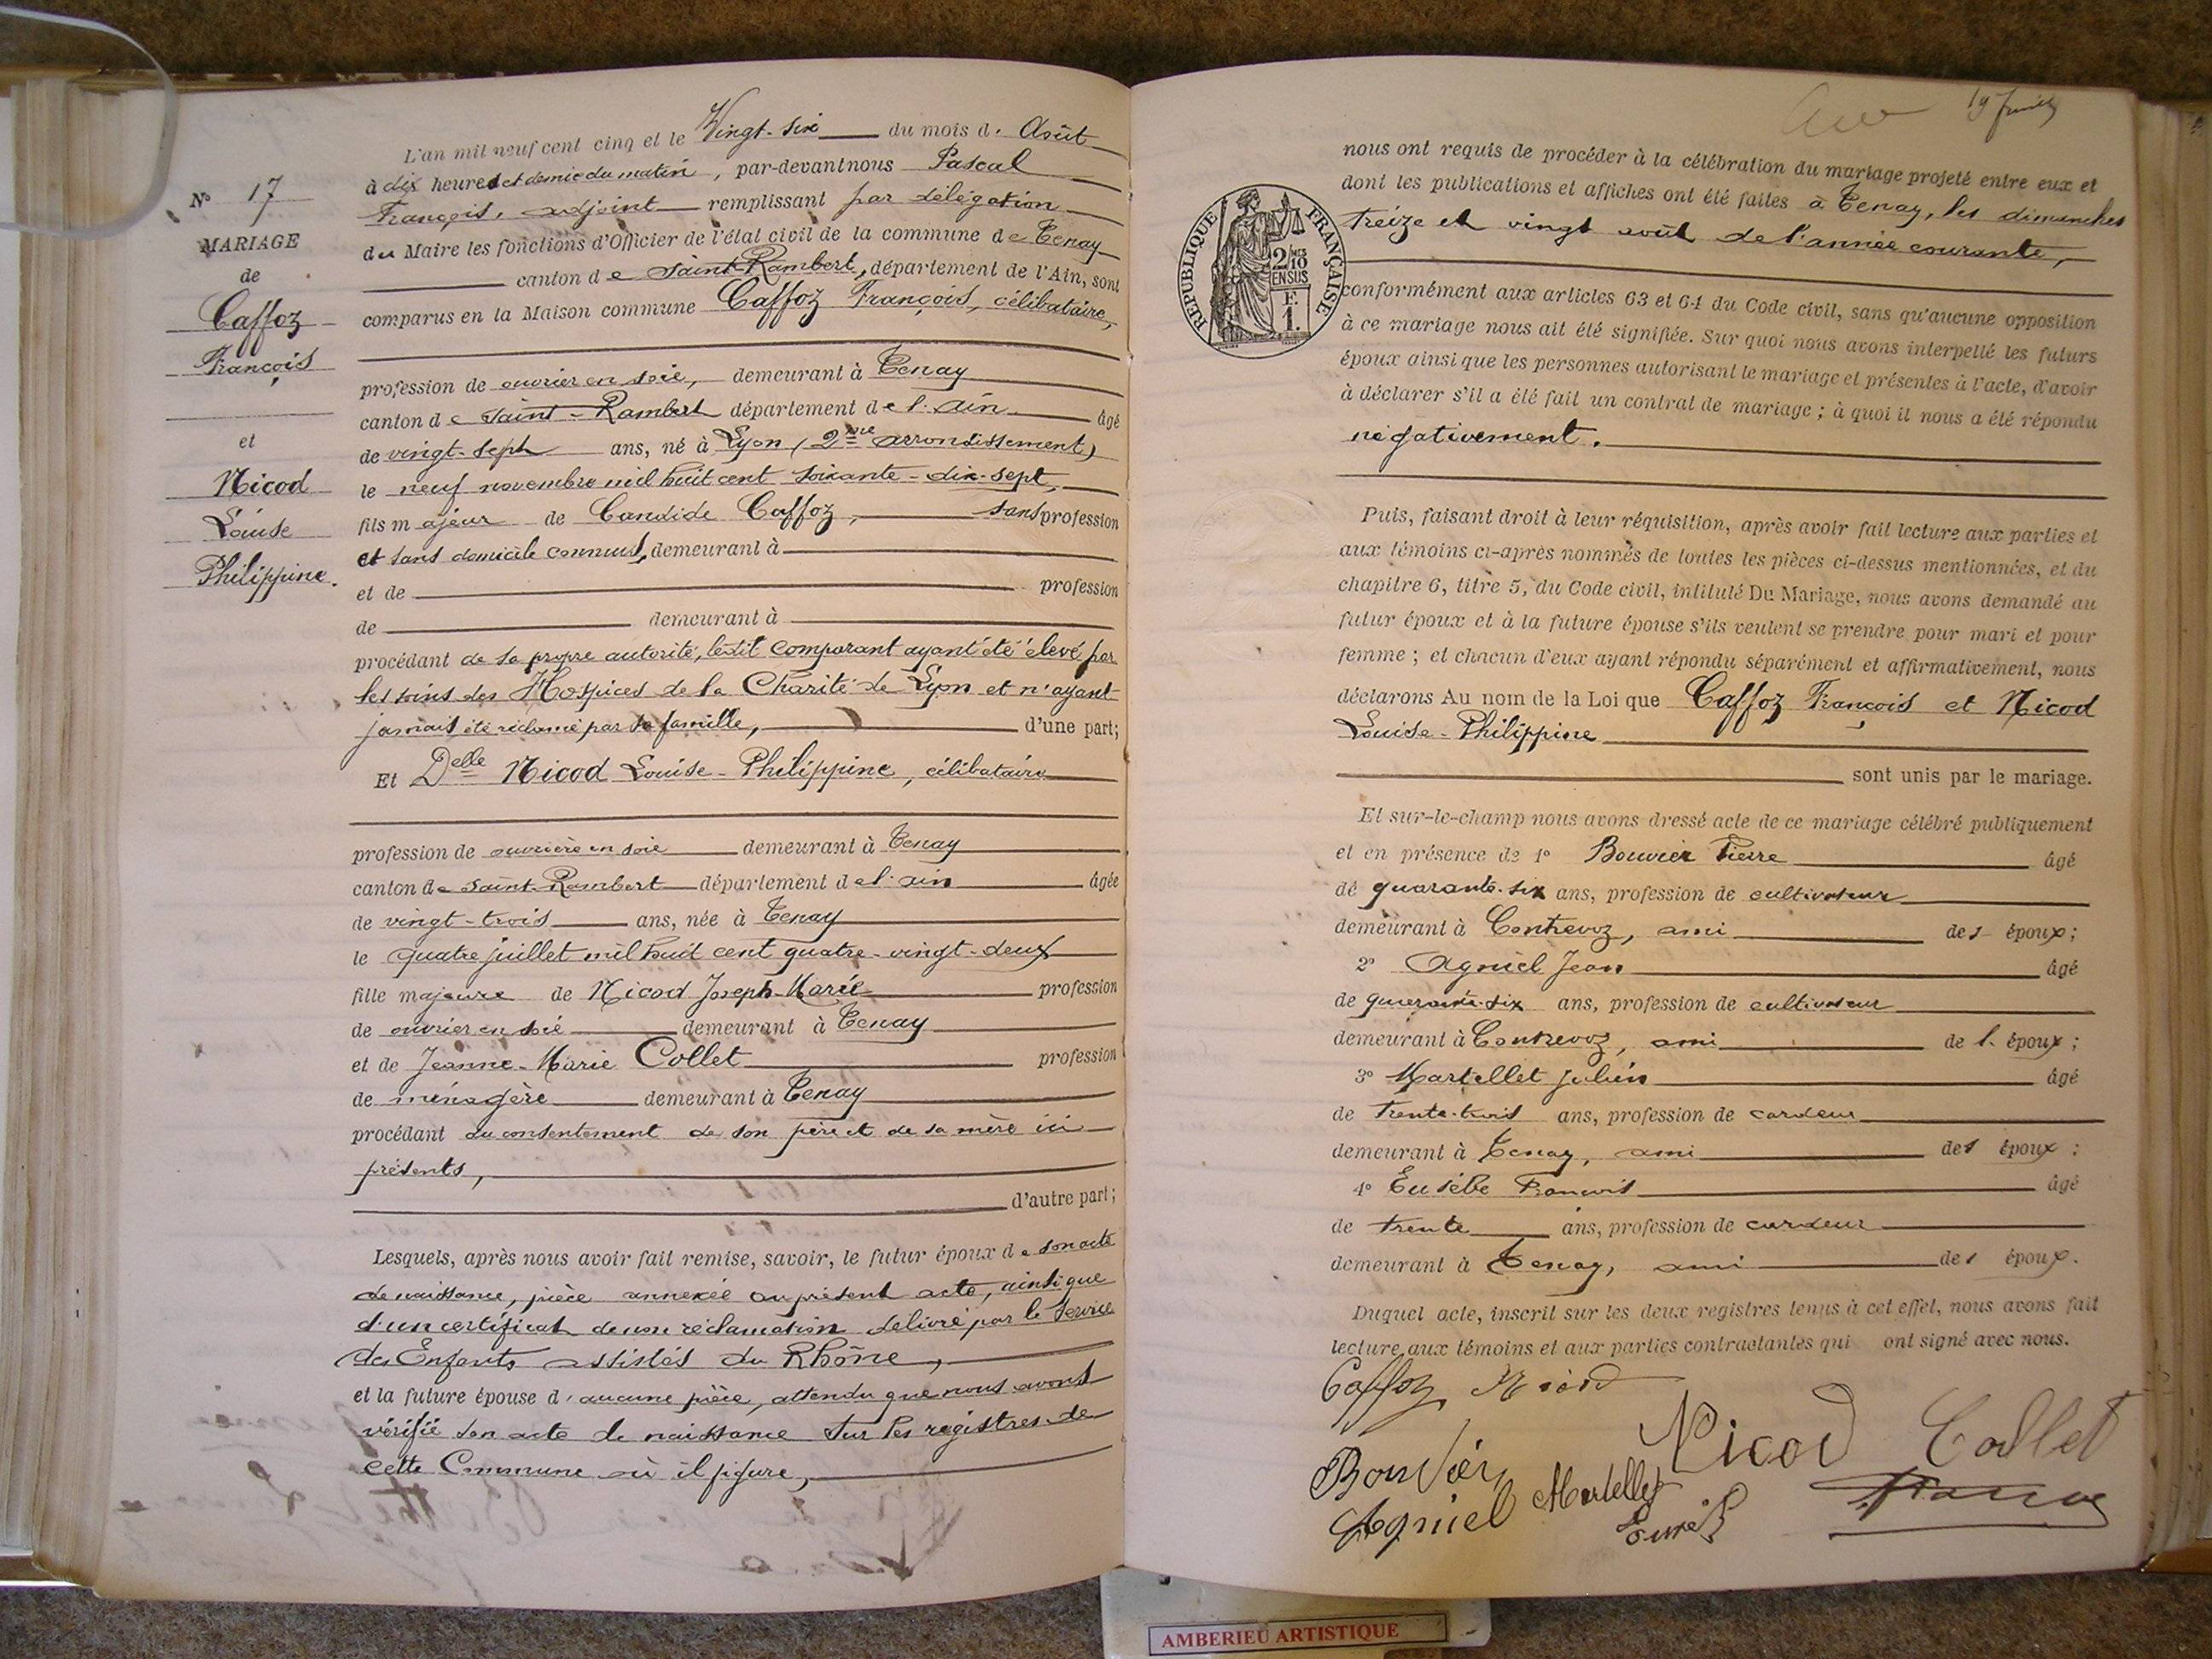 N° 17
MARIAGE
de
Caffoz
François
et
Nicod
Louise
Philippine.
L'an mil neuf cent cinq et le Vingt-six du mois d' Août
à dix heures et demie du matin, par-devant nous Pascal
François, adjoint remplissant par délégation
du Maire les fonctions d'Officier de l'état civil de la commune de Tenay
canton de Saint-Rambert, département de l'Ain, sont
comparus en la Maison commune Caffoz François, célibataire,
profession de ouvrier en soie, demeurant à Tenay
canton de Saint-Rambert département de l'Ain âgé
de vingt-sept ans, né à Lyon (2me arrondissement)
le neuf novembre mil huit cent soixante-dix-sept,
fils majeur de Candide Caffoz, sans profession
et sans domicile connus, demeurant à
et de profession
de demeurant à
procédant de sa propre autorité, ledit comparant ayant été élevé par
les soins des Hospices de la Charité de Lyon et n'ayant
jamais été réclamé par sa famille, d'une part;
Et Delle Nicod Louise-Philippine, célibataire
profession de ouvrière en soie demeurant à Tenay
canton de Saint-Rambert département de l'ain âgée
de vingt-trois ans, née à Tenay
le quatre juillet mil huit cent quatre-vingt-deux
fille majeure de Nicod Joseph-Marie profession
de ouvrier en soie demeurant à Tenay
et de Jeanne-Marie Collet profession
de ménagère demeurant à Tenay
procédant du consentement de son père et de sa mère ici
présents,
d'autre part;
Lesquels, après nous avoir fait remise, savoir, le futur époux de son acte
de naissance, pièce annexée au présent acte, ainsi que
d'un certificat de non réclamation délivré par le Service
des Enfants assistés du Rhône,
et la future épouse d'aucune pièce, attendu que nous avons
vérifié son acte de naissance sur les registres de
cette Commune où il figure,
19
RÉPUBLIQUE FRANÇAISE
2/10
EN SUS
F.
1.
nous ont requis de procéder à la célébration du mariage projeté entre eux et
dont les publications et affiches ont été faites à Tenay, les dimanches
treize et vingt août de l'année courante,
conformément aux articles 63 et 64 du Code civil, sans qu'aucune opposition
à ce mariage nous ait été signifiée. Sur quoi nous avons interpellé les futurs
époux ainsi que les personnes autorisant le mariage et présentes à l'acte, d'avoir
à déclarer s'il a été fait un contrat de mariage; à quoi il nous a été répondu
négativement.
Puis, faisant droit à leur réquisition, après avoir fait lecture aux parties et
aux témoins ci-après nommés de toutes les pièces ci-dessus mentionnées, et du
chapitre 6, titre 5, du Code civil, intitulé Du Mariage, nous avons demandé au
futur époux et à la future épouse s'ils veulent se prendre pour mari et pour
femme; et chacun d'eux ayant répondu séparément et affirmativement, nous
déclarons Au nom de la Loi que Caffoz François et Nicod
Louise-Philippine
sont unis par le mariage.
Et sur-le-champ nous avons dressé acte de ce mariage célébré publiquement
et en présence de 1° Bouvier Pierre âgé
de quarante-six ans, profession de cultivateur
demeurant à Contrevoz, ami des époux;
2° Agniel Jean âgé
de quarante-six ans, profession de cultivateur
demeurant à Contrevoz, ami de l. époux;
3° Martellet Julien âgé
de trente-trois ans, profession de cardeur
demeurant à Tenay, ami des époux;
4° Eusèbe François âgé
de trente ans, profession de cardeur
demeurant à Tenay, ami des époux.
Duquel acte, inscrit sur les deux registres tenus à cet effet, nous avons fait
lecture aux témoins et aux parties contractantes qui ont signé avec nous.
Caffoz Nicod
Nicod Collet
Bouvier Martellet
Agniel
AMBERIEU ARTISTIQUE